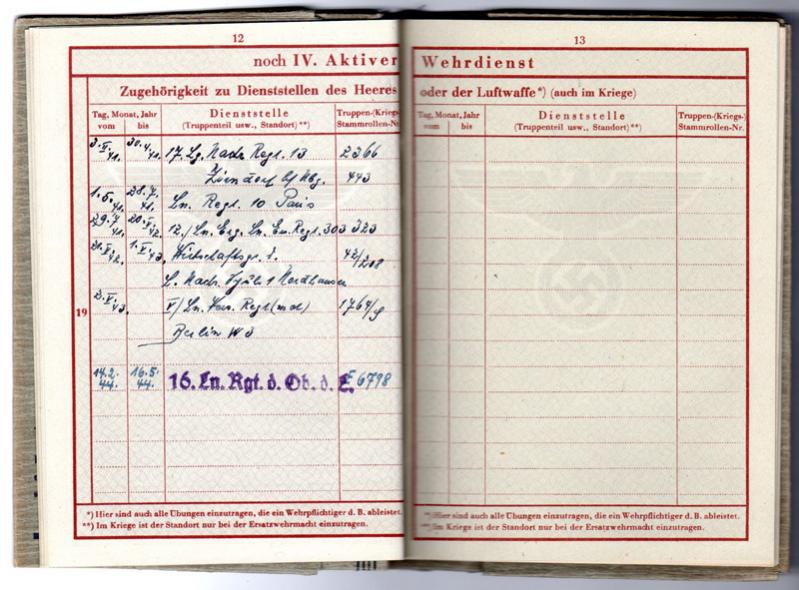 12
noch IV. Aktiver
Zugehörigkeit zu Dienststellen des Heeres
Tag, Monat, Jahr
vom bis
Dienststelle
(Truppenteil usw., Standort)**)
Truppen-(Kriegs-
Stammrollen-Nr.
30.4. 17. Lg. Nachr. Regt. 13 2366
41. 41. 443
1.5. 28.7. Ln. Regt. 10 Paris
41. 41.
29.7. 12./Ln. Erg. Ln. Regt. 303 323
41. 42.
Wirtschaftsgr. 42/208
42. 43.
L. Nachr. Nordhausen
43. Ln. Regt 1764/9
19
Berlin
14.2. 16.5. 16. Ln. Rgt. d. Ob. d. L. 6798
44. 44.
*) Hier sind auch alle Übungen einzutragen, die ein Wehrpflichtiger d. B. ableistet.
**) Im Kriege ist der Standort nur bei der Ersatzwehrmacht einzutragen.
13
Wehrdienst
oder der Luftwaffe*) (auch im Kriege)
Tag, Monat, Jahr
vom bis
Dienststelle
(Truppenteil usw., Standort)**)
Truppen-(Kriegs-)
Stammrollen-Nr.
*) Hier sind auch alle Übungen einzutragen, die ein Wehrpflichtiger d. B. ableistet.
**) Im Kriege ist der Standort nur bei der Ersatzwehrmacht einzutragen.